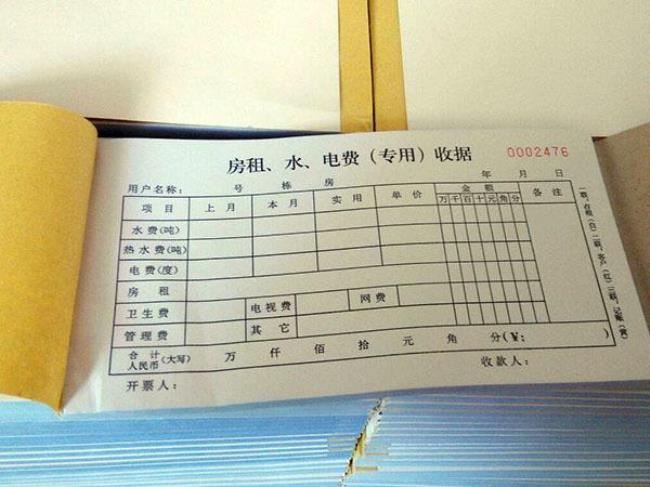 房租、水、电费（专用）收据 0002476
用户名称： 号 栋 房 年 月 日
项目 上月 本月 实用 单价 金额 备注
万千百十元角分
水费(吨)
热水费(吨)
电费(度)
房租
卫生费 电视费 网费
管理费 其它
合计人民币(大写) 万 仟 佰 拾 元 角 分(¥： )
开票人： 收款人：
一联：存根(白)二联：客户(红)三联：记账(黄)